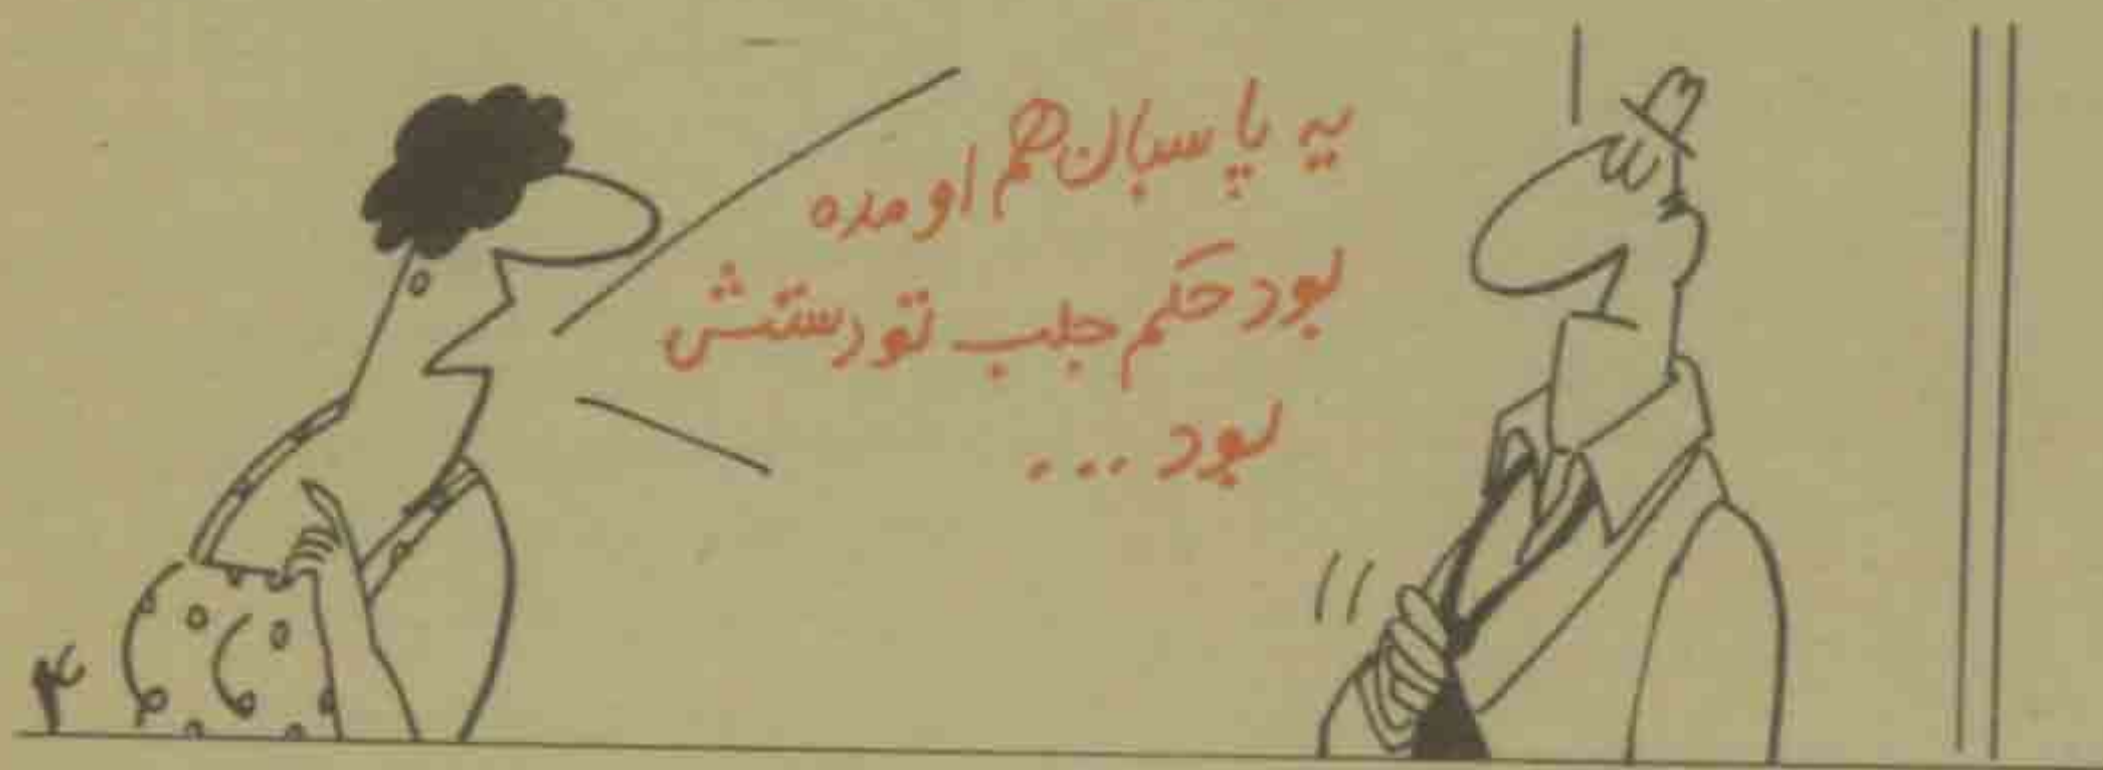 یه پاسبان هم اومده
بود حکم جلب تو دستش
بود...
۴